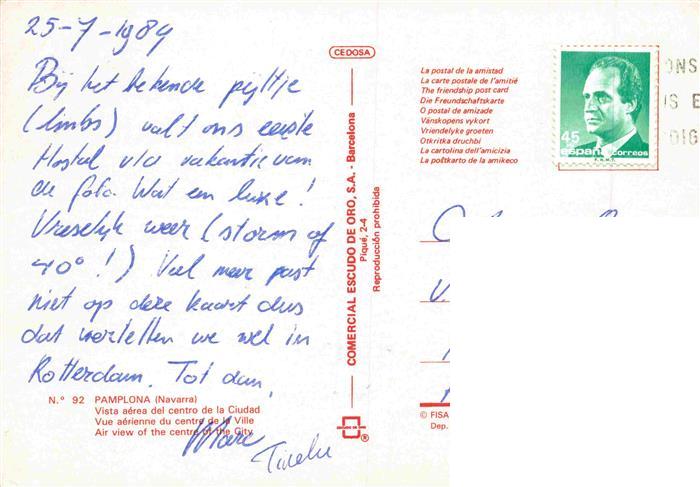 25-7-1989
Bij het bekende pijltje
(links) valt ons eerste
Hostal v/d vakantie van
de foto. Wat een luxe!
Vreselijk weer (storm of
40°!) Veel meer past
niet op deze kaart dus
dat vertellen we wel in
Rotterdam. Tot dan,
Marc
N.º 92 PAMPLONA (Navarra)
Vista aérea del centro de la Ciudad
Vue aérienne du centre de la Ville
Air view of the centre of the City
CEDOSA
COMERCIAL ESCUDO DE ORO, S.A. - Barcelona
Piqué, 2-4
Reproducción prohibida
La postal de la amistad
La carte postale de l'amitié
The friendship post card
Die Freundschaftskarte
O postal de amizade
Vänskapens vykort
Vriendelyke groeten
Otkritka druchbi
La cartolina dell'amicizia
La poŝtkarto da la amikeco
45
españa correos
F.N.M.T.
ONS
US E
DIG
© FISA
Dep.